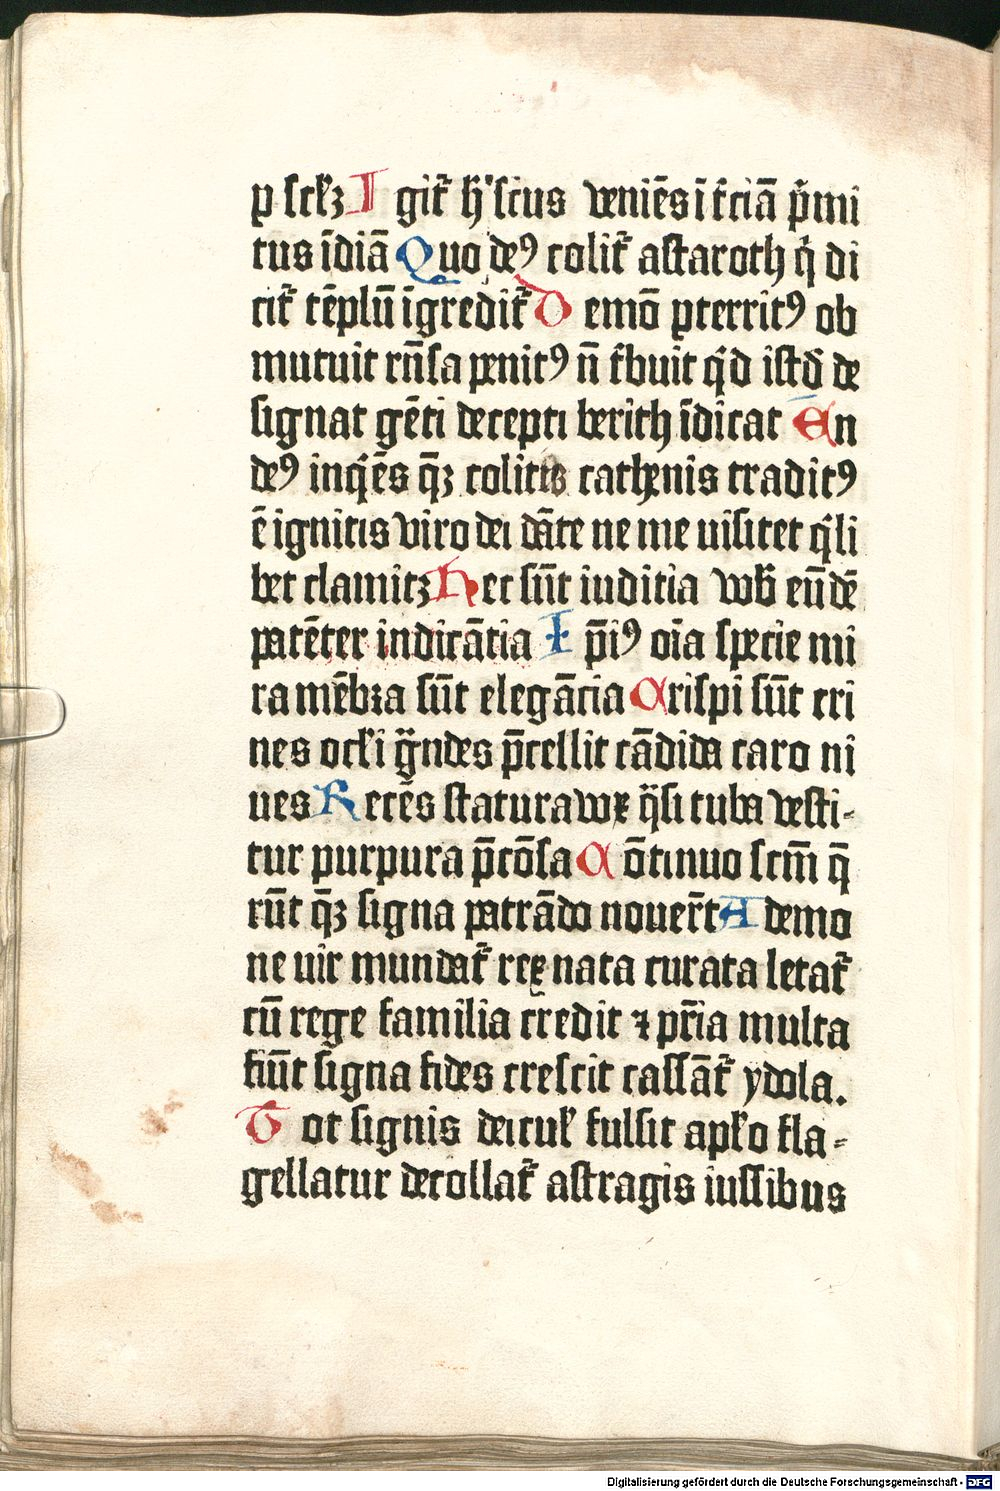 ꝑ sclꝫ Igit᷑ h' sc̄us veniēs ī t̄ciā p̄mi
tus īdiā Quo de⁹ colit᷑ astaroth q̇ di
cit᷑ tēplū īgredit᷑ Demō ꝑterrit⁹ ob
mutuit rn̄sa penit⁹ n̄ t̄buit q̇d istd̄ de
signat gēti decepti berith īdicat En
de⁹ inq̇ēs q̄ꝫ colitis cathenis tradit⁹
ē ignitis viro dei dāte ne me uisitet q̇li
bet clamitꝫ Hec sūt iuditia vob̄ eūdē
patēter indicātia Ip̄i⁹ oīa specie mi
ra mēbra sūt elegācia Crispi sūt cri
nes ocl̄i g̈ndes p̄cellit cādida caro ni
ues Recēs statura vox q̈si tuba vesti-
tur purpura p̄cōsa Cōtinuo scm̄ q̄
rūt q̄ꝫ signa patrādo nouer̄t A demo
ne uir mundat᷑ rex nata curata letat᷑
cū rege familia credit ⁊ pr̄ia multa
fiūt signa fides crescit cassāt᷑ ydola.
Tot signis deicul̄ fulsit apl̄o fla-
gellatur decollat᷑ astragis iussibus
Digitalisierung gefördert durch die Deutsche Forschungsgemeinschaft - DFG